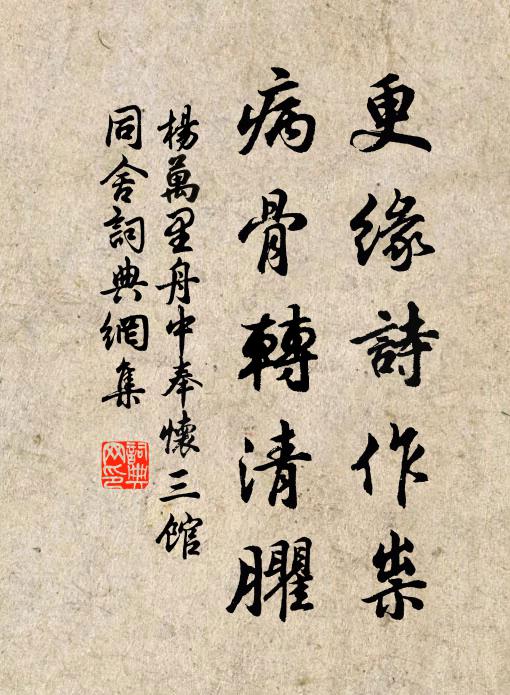 更緣詩作祟
病骨轉清臞
楊萬里舟中奉懷三館
同舍詞典網集
詞典网印